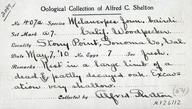 Oological Collection of Alfred C. Shelton
No. 407a Species Melanerpes form. bairdi
Set Mark Calif. Woodpecker.
Locality Stony Point, Sonoma Co., Cal.
Date May 7, '10 No. Eggs ? Inc. Fresh.
Remarks Nest in a large limb of a
dead & partly decayed oak. Excav-
ation very shallow.
Collected by Alfred Shelton